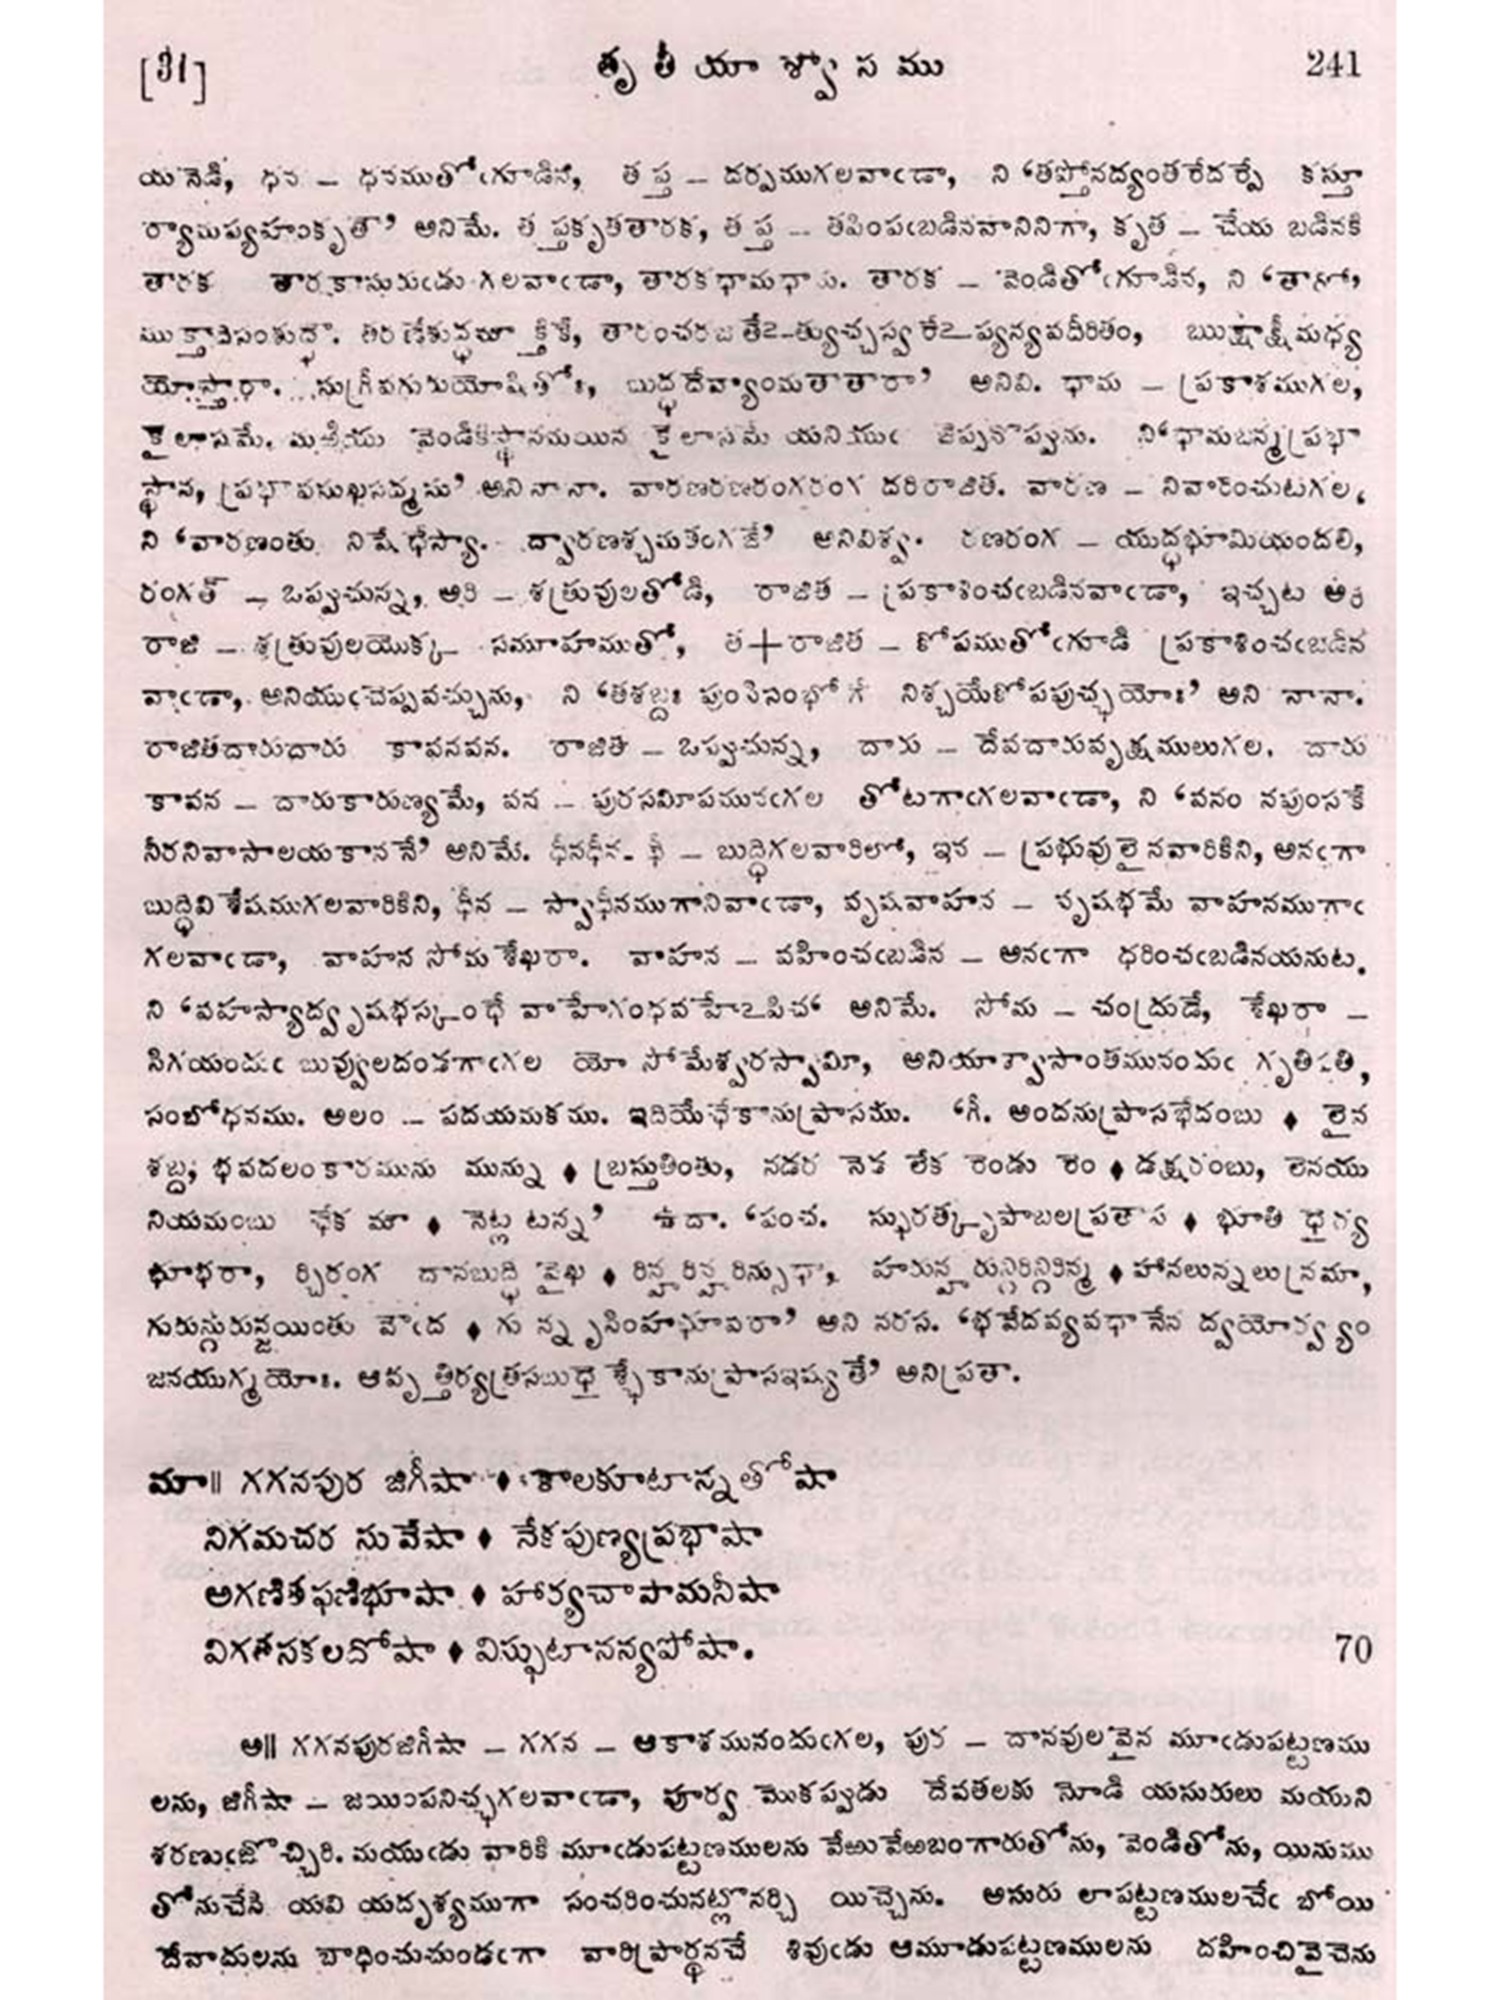 [31] తృతీయాశ్వాసము 241
యనెడి, ధన – ధనముతోఁగూడిన, తప్త – దర్పముగలవాఁడా, ని ‘తప్తోనద్యంతరేదర్పే కస్తూ
ర్యామప్యహంకృతౌ’ అనిమే. తప్తకృతతారక, తప్త – తపింపఁబడినవానినిగా, కృత – చేయ బడినకి
తారక తారకాసురుఁడు గలవాఁడా, తారకధామధామ. తారక – వెండితోఁగూడిన, ని ‘తారో,
ముక్తాదిసంశుద్ధౌ. తరణేశుద్ధమౌక్తికే, తారంచరజతేఽత్యుచ్చస్వరేఽప్యన్యవదీరితం, ఋక్షాక్షీమధ్య
యోస్తారా. సుగ్రీవగురుయోషితోః, బుద్ధదేవ్యాంమతాతారా’ అనివి. ధామ – ప్రకాశముగల,
కైలాసమే. మఱియు వెండికిస్థానమయిన కైలాసమే యనియుఁ జెప్పనొప్పును. ని ‘ధామజన్మప్రభా
స్థాన, ప్రభావసుఖసద్మసు’ అనినానా. వారణరణరంగరంగ దరిరాజిత. వారణ – నివారించుటగల,
ని ‘వారణంతు నిషేధేస్యా. ద్వారణశ్చమతంగజే’ అనివిశ్వ. రణరంగ – యుద్ధభూమియందలి,
రంగత్ – ఒప్పుచున్న, అరి – శత్రువులతోడి, రాజిత – ప్రకాశించఁబడినవాఁడా, ఇచ్చట అరి
రాజి – శత్రువులయొక్క సమూహముతో, త+రాజిత – కోపముతోఁగూడి ప్రకాశించఁబడిన
వాఁడా, అనియుఁచెప్పవచ్చును, ని ‘తశబ్దః పుంసిసంభోగే నిశ్చయేకోపపుచ్ఛయోః’ అని నానా.
రాజితదారుదారు కావనవన. రాజిత – ఒప్పుచున్న, దారు – దేవదారువృక్షములుగల. దారు
కావన – దారుకారుణ్యమే, వన – పురసమీపమునఁగల తోటగాఁగలవాఁడా, ని ‘వనం నపుంసకే
నీరనివాసాలయకాననే’ అనిమే. ధీనధీన. ధీ – బుద్ధిగలవారిలో, ఇన – ప్రభువులైనవారికిని, అనఁగా
బుద్ధివిశేషముగలవారికిని, ధీన – స్వాధీనముగానివాఁడా, వృషవాహన – వృషభమే వాహనముగాఁ
గలవాఁడా, వాహన సోమశేఖరా. వాహన – వహించఁబడిన – అనఁగా ధరించఁబడినయనుట.
ని ‘వహస్యాద్వృషభస్కంధే వాహేగంధవహేఽపిచ‘ అనిమే. సోమ – చంద్రుడే, శేఖరా –
సిగయందుఁ బువ్వులదండగాఁగల యో సోమేశ్వరస్వామీ, అనియాశ్వాసాంతమునందుఁ గృతిపతి,
సంబోధనము. అలం – పదయమకము. ఇదియేఛేకానుప్రాసము. ‘గీ. అందనుప్రాసభేదంబు ♦ లైన
శబ్ద, భవదలంకారమును మున్ను ♦ బ్రస్తుతింతు, నడర నెడ లేక రెండు రెం ♦ డక్షరంబు, లెనయు
నియమంబు ఛేక మా ♦ నెట్ల టన్న’ ఉదా. ‘పంచ. స్ఫురత్కృపాబలప్రతాప ♦ భూతి ధైర్య
భూభరా, ర్చిరంగ దానబుద్ధి వైఖ ♦ రిన్హరిన్హరిన్సుధా, హరున్హరున్గిరిన్గిరిన్మ ♦ హానలున్నలున్రమా,
గురున్గురున్జయింతు వౌఁద ♦ గు న్నృసింహభూవరా’ అని నరస. ‘భవేదవ్యవధానేన ద్వయోర్వ్యం
జనయుగ్మయోః. ఆవృత్తిర్యత్రసబుధై శ్ఛేకానుప్రాసఇష్యతే’ అనిప్రతా.
మా॥ గగనపుర జిగీషా ♦ కాలకూటాన్నతోషా
నిగమచర సువేషా ♦ నేకపుణ్యప్రభాషా
అగణితఫణిభూషా ♦ హార్యచాపామనీషా
విగతసకలదోషా ♦ విస్ఫుటానన్యపోషా. 70
అ॥ గగనపురజిగీషా – గగన – ఆకాశమునందుఁగల, పుర – దానవులవైన మూఁడుపట్టణము
లను, జిగీషా – జయింపనిచ్ఛగలవాఁడా, పూర్వ మొకప్పుడు దేవతలకు నోడి యసురులు మయుని
శరణుఁజొచ్చిరి. మయుఁడు వారికి మూఁడుపట్టణములను వేఱువేఱబంగారుతోను, వెండితోను, యినుము
తోనుచేసి యవి యదృశ్యముగా సంచరించునట్లొనర్చి యిచ్చెను. అసురు లాపట్టణములచేఁ బోయి
దేవాదులను బాధించుచుండఁగా వారిప్రార్థనచే శివుఁడు ఆమూడుపట్టణములను దహించివైచెను